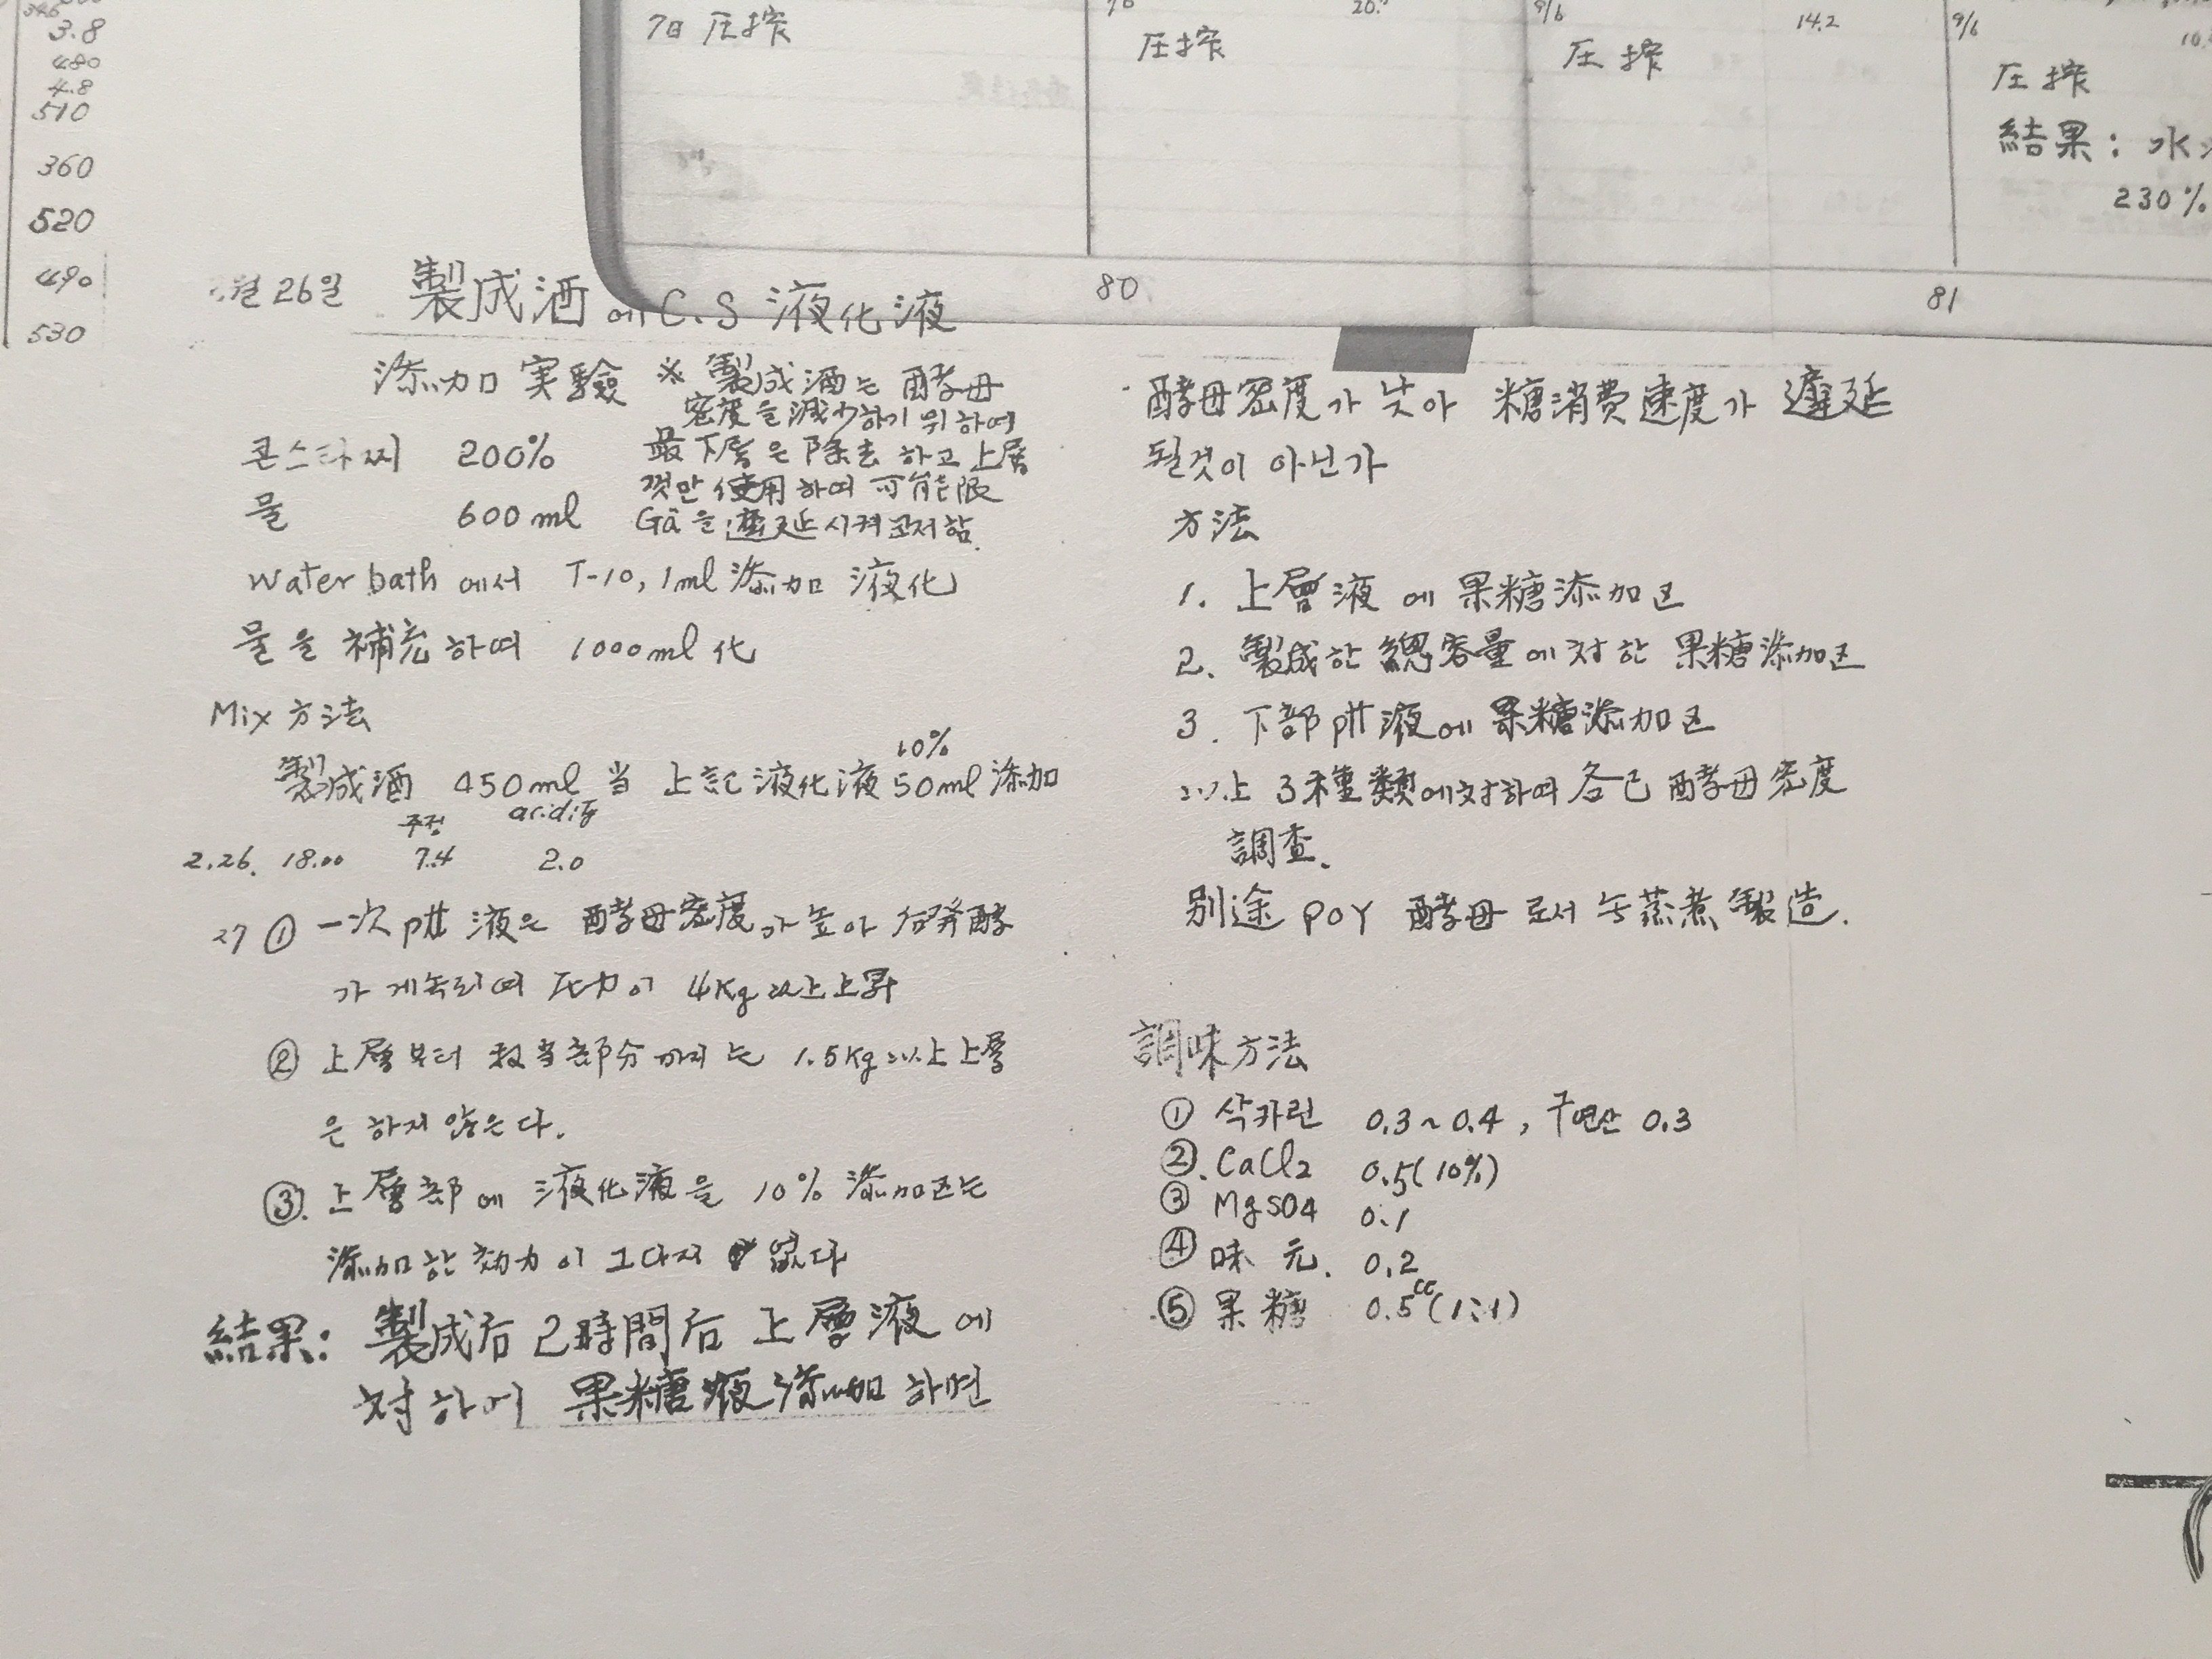 346
3.8
480
4.8
510
360
520
490
530
7日 圧搾
圧搾
20.
9/6
圧搾
14.2
9/6
圧搾
結果: 水
230%
80
81
월 26일 製成酒에 C.S 液化液
添加 実験 ※ 製成酒는 酵母
密度를 減少하기 위하여
最下層은 除去하고 上層
껏만 使用하여 可能限
Gas를 遲延시켜고저함.
콘스타찌 200%
물 600ml
Water bath에서 T-10, 1ml 添加 液化
물을 補充하여 1000ml化
Mix 方法
10%
製成酒 450ml 当 上記 液化液 50ml 添加
주정 acidity
2.26. 18.00 7.4 2.0
27 ① 一次 pH 液은 酵母密度가 높아 后発酵
가 게속되여 圧力이 4Kg以上 上昇
② 上層부터 相当部分까지는 1.5Kg以上 上層
은 하지 않은다.
③. 上層部에 液化液을 10% 添加区는
添加한 効力이 그다지 없다
結果: 製成后 2時間后 上層液에
対하여 果糖液 添加하면
酵母密度가 낮아 糖消費速度가 遲延
될것이 아닌가
方法
1. 上層液에 果糖添加区
2. 製成한 總容量에 対한 果糖添加区
3. 下部pH液에 果糖添加区
以上 3種類에 対하여 各已 酵母密度
調査.
別途 POY 酵母로서 蒸煮製造.
調味方法
① 삭카린 0.3~0.4, 구연산 0.3
②. CaCl2 0.5(10%)
③ MgSO4 0.1
④ 味元. 0.2
⑤ 果糖 0.5cc(1:1)